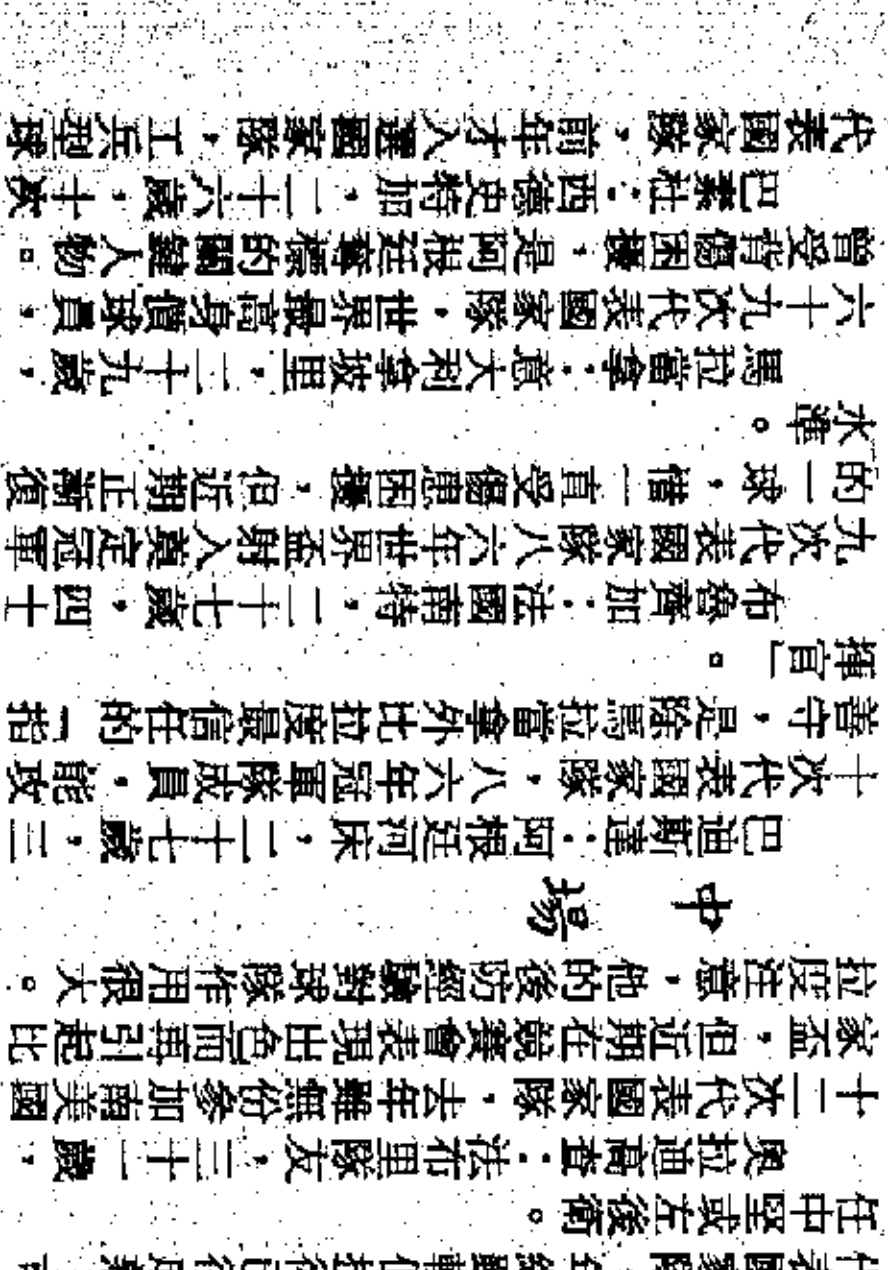 代表國家隊，
任中堅或左後衛。
奧拉迪高查：法布里隊友，三十一歲，
十二次代表國家隊，去年雖無份參加南美國
家盃，但近期在競賽會表現出色而再引起比
拉度注意，他的後防經驗對球隊作用很大。
中場
巴迪斯達：阿根廷河床，二十七歲，三
十次代表國家隊，八六年冠軍隊成員，能攻
善守，是除馬拉當拿外比拉度最信任的「指
揮官」。
布魯齊加：法國南特，二十七歲，四十
九次代表國家隊八六年世界盃射入奠定冠軍
的一球，惜一直受傷患困擾，但近期正漸復
水準。
馬拉當拿：意大利拿坡里，二十九歲，
六十九次代表國家隊，世界最高身價球員，
曾受背傷困擾，是阿根廷奪標的關鍵人物。
巴素杜：西德史特加，二十六歲，十次
代表國家隊，前年才入選國家隊，工兵型球